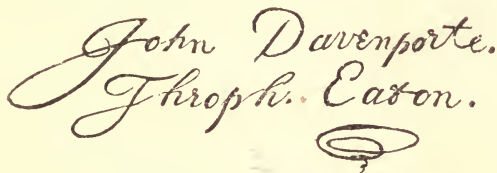 John Davenporte.
Throph. Eaton.